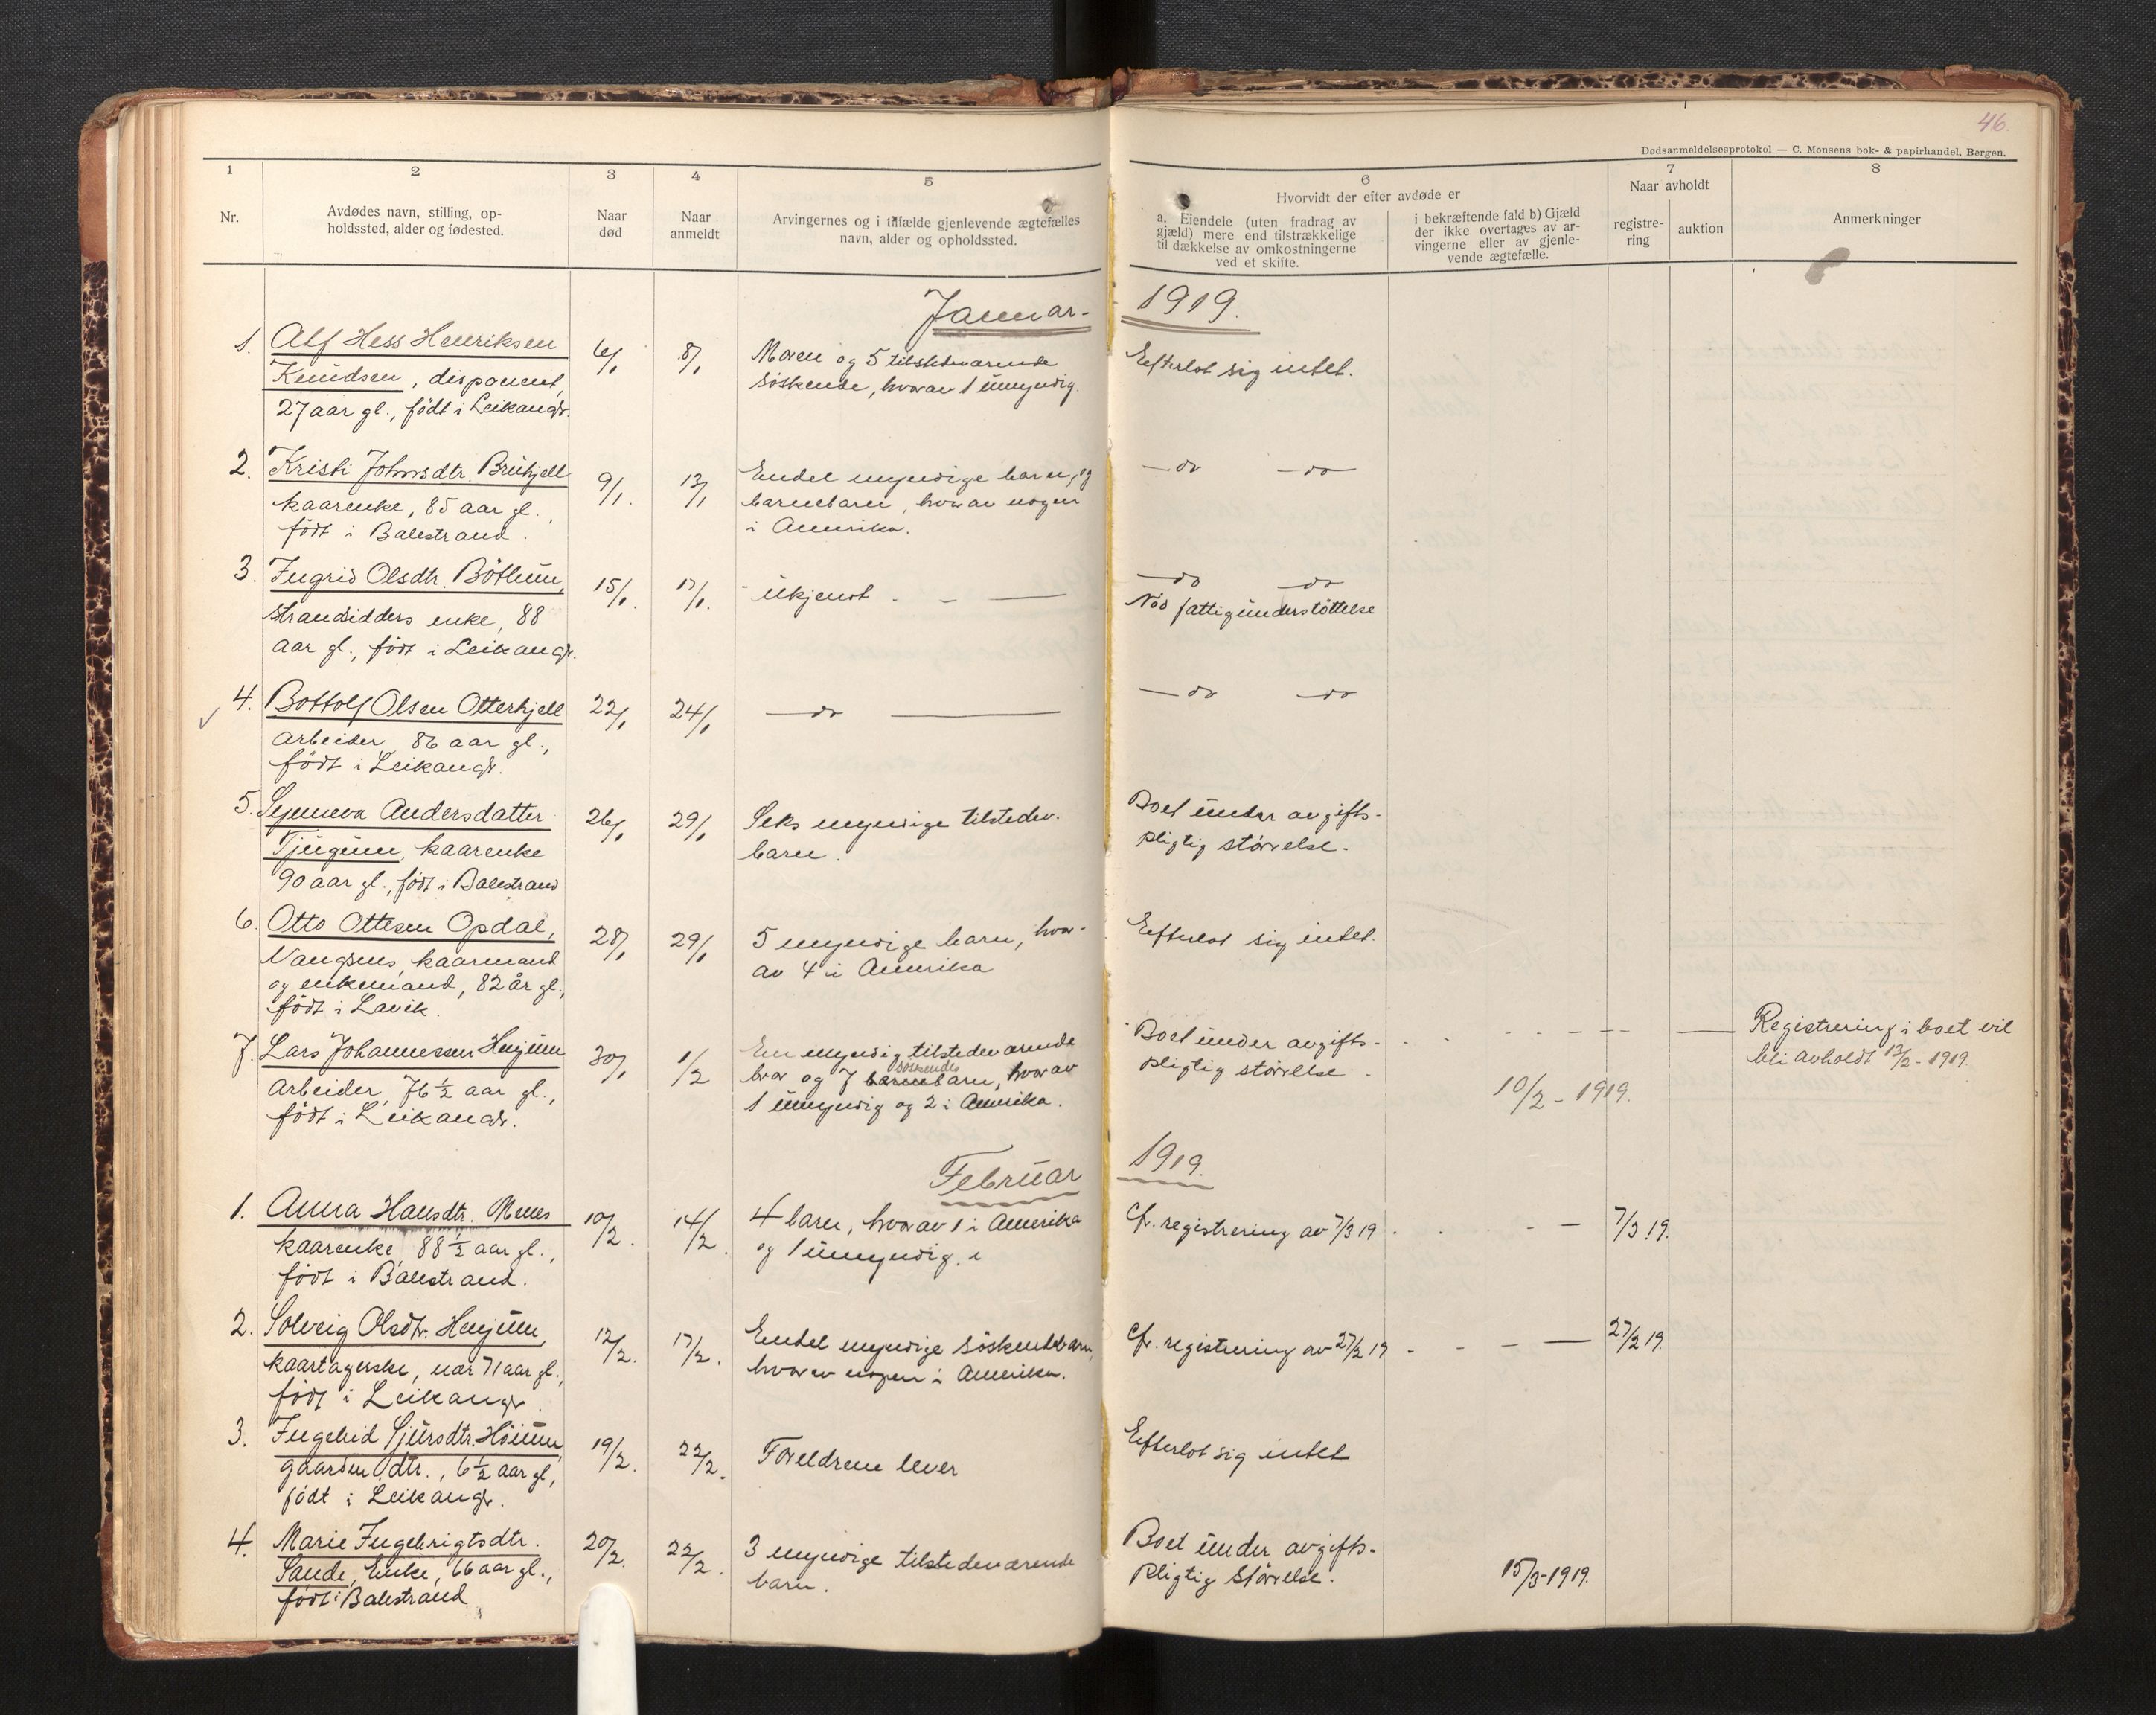 46.
Dødsanmeldelsesprotokol — C. Monsens bok- & papirhandel, Bergen.
1
2
3
4
5
6
7
8
Nr.
Avdødes navn, stilling, op-
holdssted, alder og fødested.
Naar
død
Naar
anmeldt
Arvingernes og i tilfælde gjenlevende ægtefælles
navn, alder og opholdssted.
Hvorvidt der efter avdøde er
a. Eiendele (uten fradrag av
gjæld) mere end tilstrækkelige
til dækkelse av omkostningerne
ved et skifte.
i bekræftende fald b) Gjæld
der ikke overtages av ar-
vingerne eller av gjenle-
vende ægtefælle.
Naar avholdt
registre-
ring
auktion
Anmerkninger
Januar - 1919.
1. Alf Hess Henriksen
Knudsen, disponent,
27 aar gl., født i Leikanger.
6/1
8/1
Moren og 5 tilstedeværende
söskende, hvorav 1 umyndig.
Efterlot sig intet.
2. Kristi Johnsdtr.
kaarenke, 85 aar gl.,
født i Balestrand.
9/1.
13/1
Endel myndige barn, og
barnebarn, hvorav nogen
i Amerika.
— do — do —
3. Ingrid Olsdtr. Böthun,
Strandsidders enke, 88
aar gl., født i Leikangr.
15/1.
17/1.
Ukjendt . - —
— do — do
Nöd fattigunderstöttelse
4. Bottolf Olsen Otterhjell
arbeider, 86 aar gl.,
født i Leikangr.
22/1
24/1
— do —
— do — do
5. Synneva Andersdatter
Tjugum, kaarenke
90 aar gl., født i Balestrand
26/1
29/1
Seks myndige tilstedev.
barn.
Boet under avgifts-
pligtig störrelse.
6. Otto Ottesen Opdal,
Vangsnes, kaarmand
og enkemand, 82 år gl.,
født i Lavik.
28/1
29/1
5 myndige barn, hvor-
av 4 i Amerika
Efterlot sig intet.
7. Lars Johannessen Henjum
arbeider, 76 ½ aar gl.,
født i Leikangr.
30/1
1/2
En myndig tilstedeværende
bror og 7 söskendebarn, hvorav
1 umyndig og 2 i Amerika.
Boet under avgifts-
pligtig störrelse.
10/2 - 1919.
Registrering i boet vil
bli avholdt 13/2 - 1919.
Februar 1919.
1. Anna Hansdtr. Menes
kaarenke 88 ½ aar gl.,
født i Balestrand.
10/2.
14/2.
4 barn, hvorav 1 i Amerika
og 1 umyndig.
Cfr. registrering av 7/3 19
7/3 19.
2. Solveig Olsdtr. Henjum,
kaartagerske, nær 71 aar gl.,
født i Leikangr.
12/2.
17/2.
Endel myndige söskendebarn,
hvorav nogen i Amerika.
Cfr. registrering av 27/2 19
27/2 19.
3. Ingebrid Sjursdtr.
gaardm. dtr., 6 ½ aar gl.,
født i Leikangr.
19/2.
22/2.
Foreldrene lever
Efterlot sig intet
4. Marie Ingebrigtsdtr.
Sande, Enke, 66 aar gl.,
født i Balestrand
20/2.
22/2.
3 myndige tilstedeværende
barn.
Boet under avgifts-
pligtig störrelse.
15/3-1919.